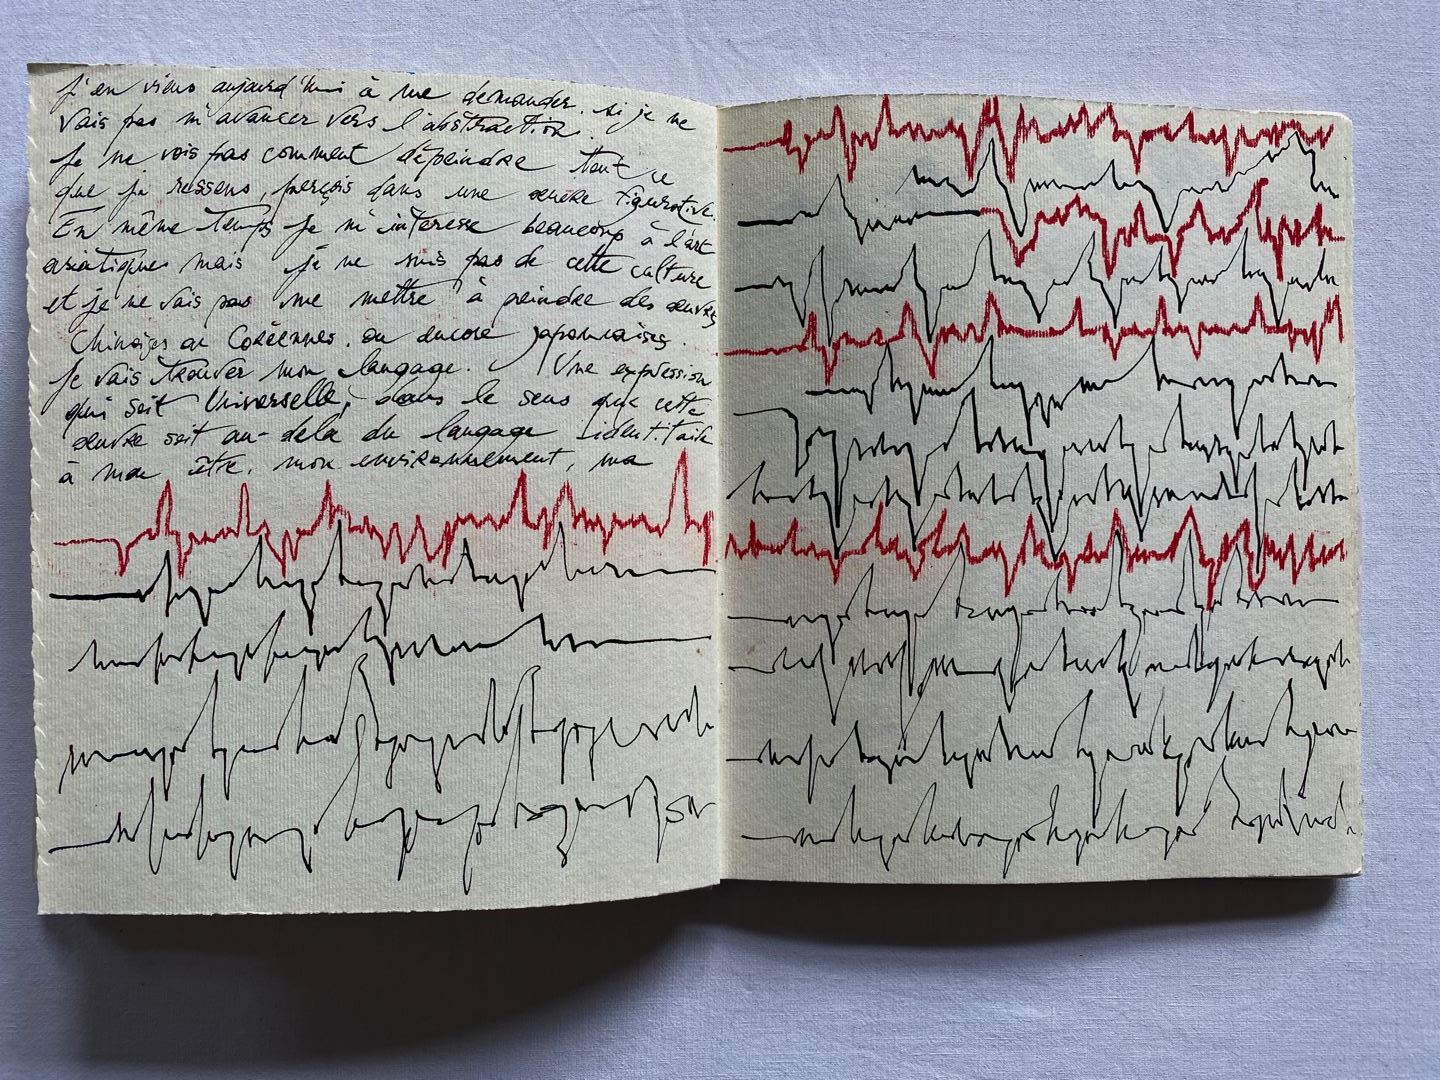 J'en viens aujourd'hui à me demander si je ne
vais pas m'avancer vers l'abstraction.
Je ne vois pas comment dépeindre tout ce
que je ressens, perçois dans une œuvre figurative.
En même temps je m'intéresse beaucoup à l'art
asiatique mais je ne suis pas de cette culture
et je ne vais pas me mettre à peindre des œuvres
Chinoises ou Coréennes, ou encore japonnaises.
Je vais trouver mon langage. Une expression
qui soit Universelle, dans le sens que cette
œuvre soit au-delà du langage identitaire
à mon être, mon environnement, ma